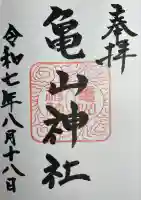 奉拝
亀山神社
令和七年八月十八日